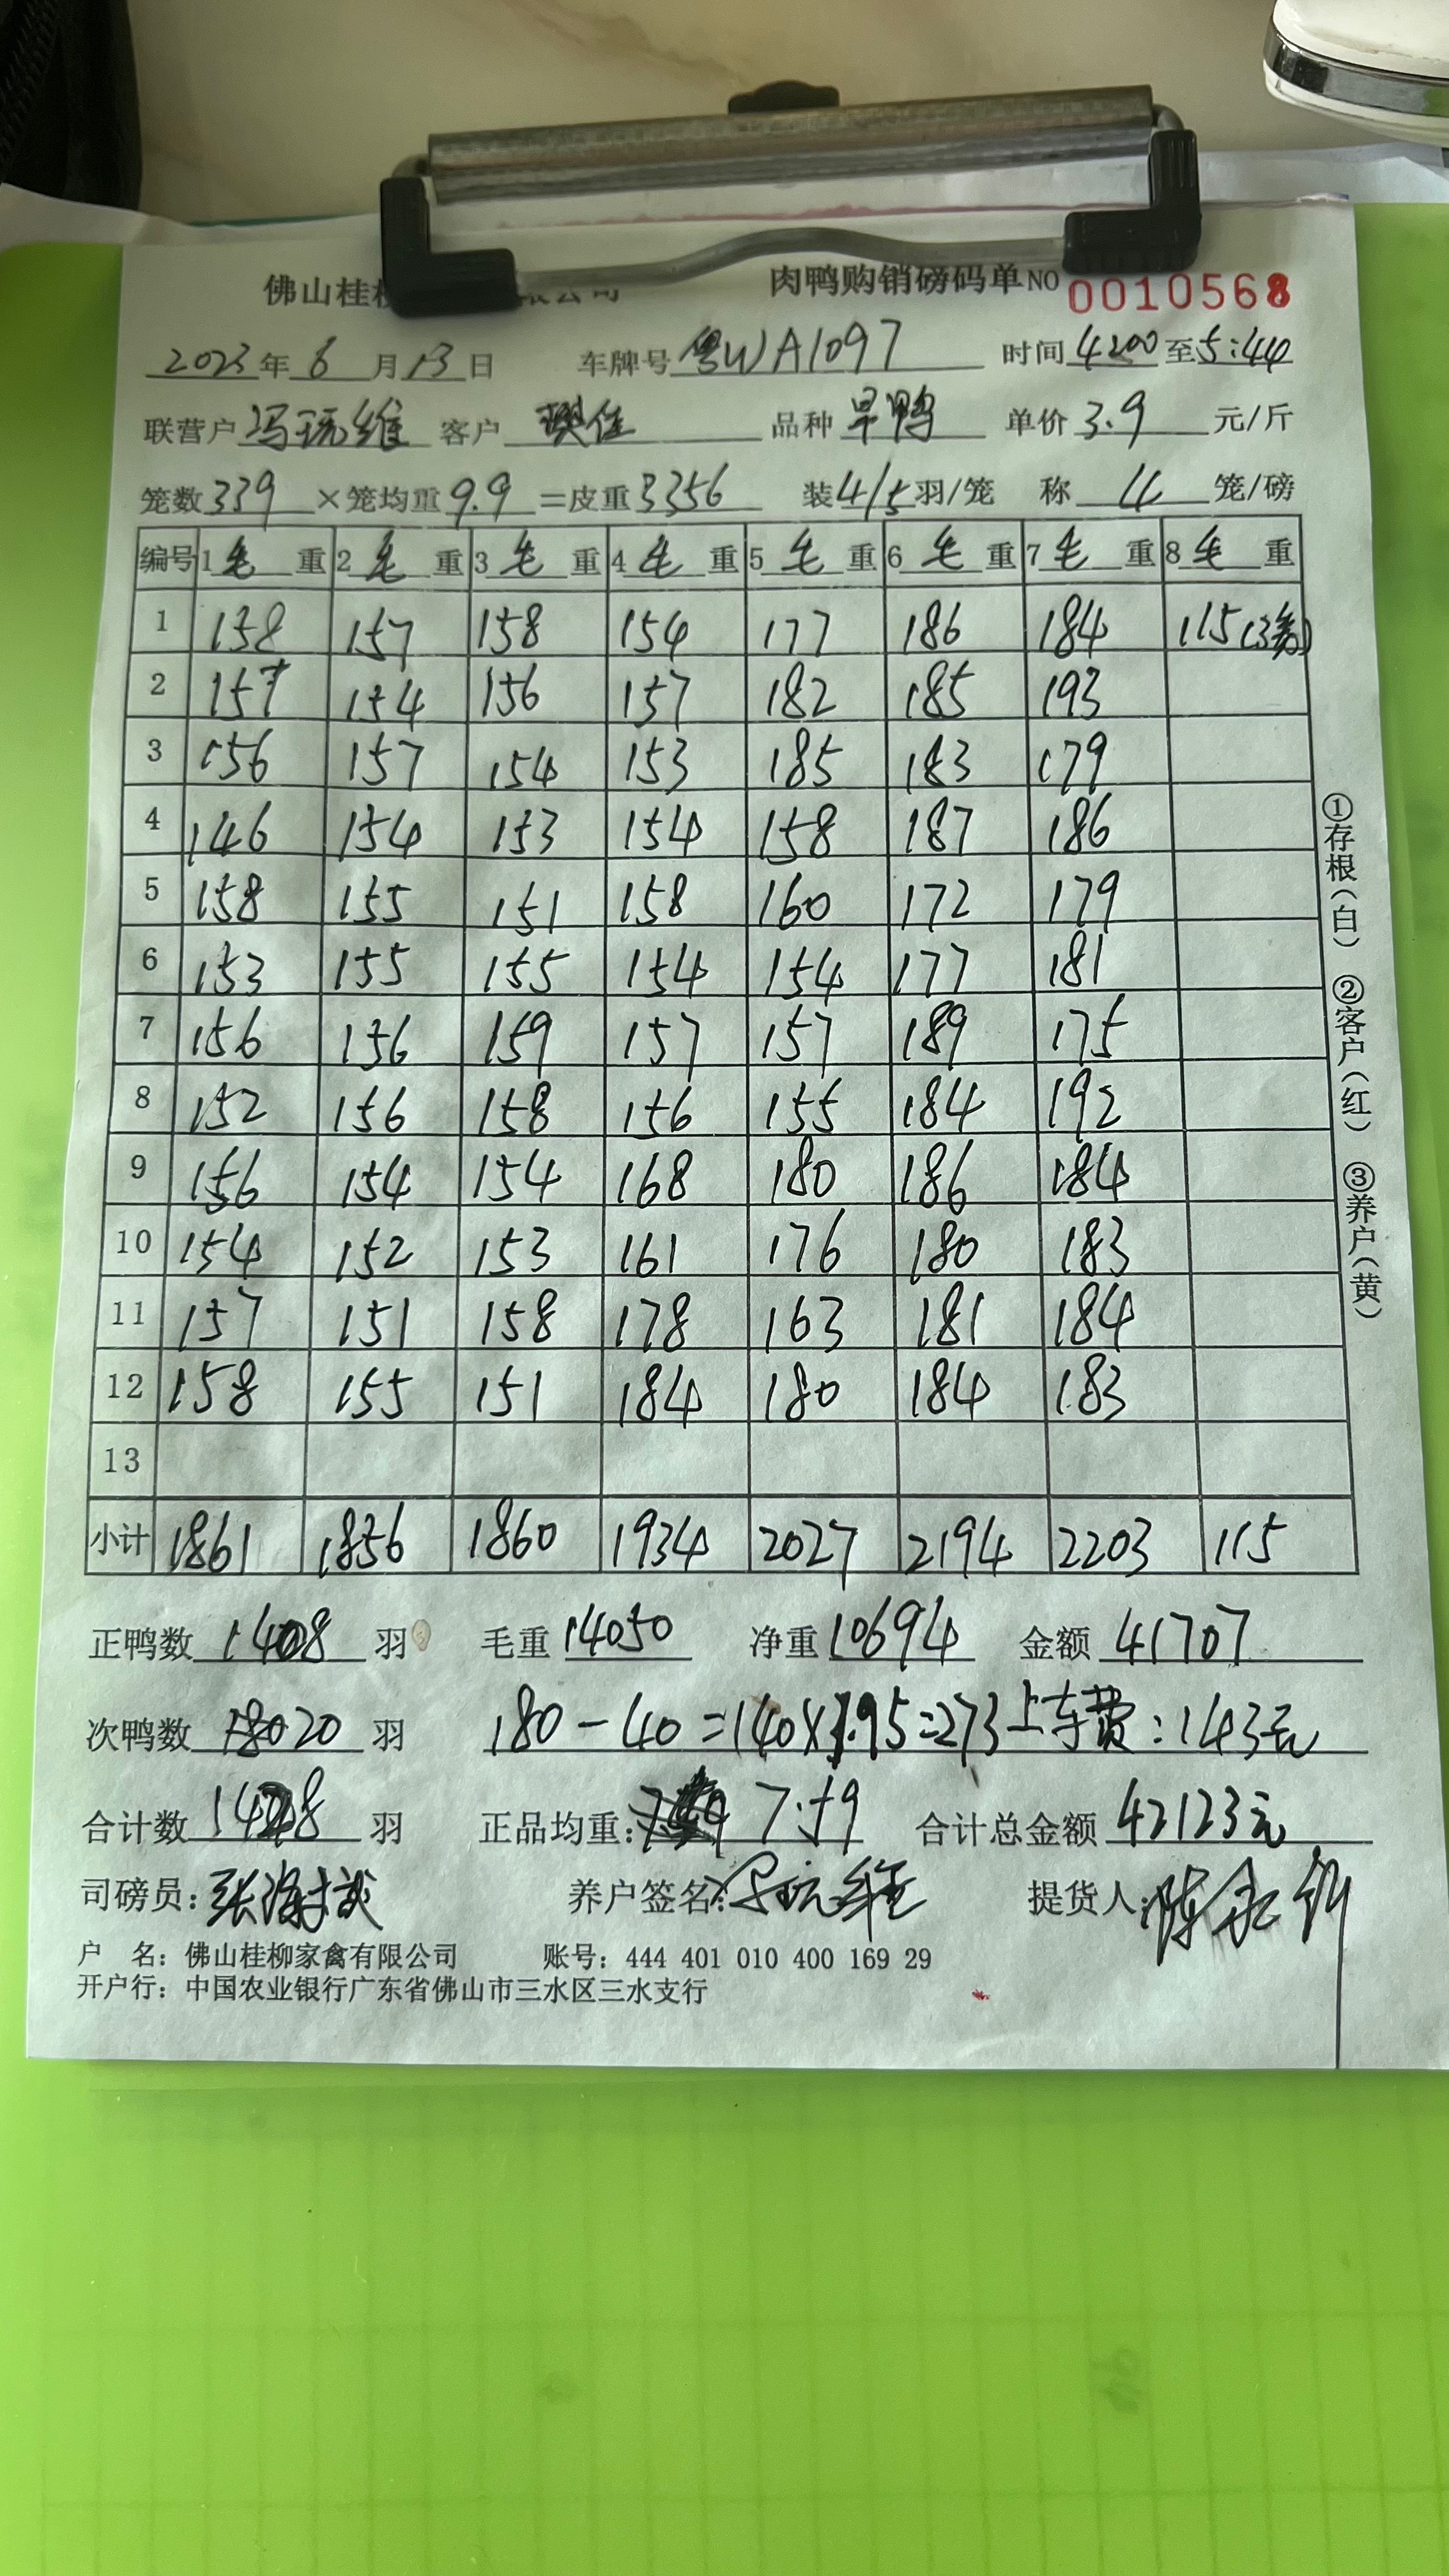 佛山桂 肉鸭购销磅码单NO 0010568
2023年6月13日 车牌号 粤WA1097 时间 4:00 至 5:44
联营户 冯玩维 客户 品种 旱鸭 单价 3.9 元/斤
笼数 339 ×笼均重 9.9 =皮重 3356 装 4/5 羽/笼 称 4 笼/磅
编号 1 毛 重 2 毛 重 3 毛 重 4 毛 重 5 毛 重 6 毛 重 7 毛 重 8 毛 重
1 158 157 158 154 177 186 184 115(3笼)
2 157 154 156 157 182 185 193
3 156 157 154 153 185 183 179
4 146 154 153 154 158 187 186
5 158 155 151 158 160 172 179
6 153 155 155 154 154 177 181
7 156 156 159 157 157 189 175
8 152 156 158 156 155 184 192
9 156 154 154 168 180 186 184
10 154 152 153 161 176 180 183
11 157 151 158 178 163 181 184
12 158 155 151 184 180 184 183
13
小计 1861 1856 1860 1934 2027 2194 2203 115
正鸭数 1408 羽 毛重 14050 净重 10694 金额 41707
次鸭数 20 羽 180-40=140×1.95=273 上车费:143元
合计数 1428 羽 正品均重: 7.59 合计总金额 42123元
司磅员: 张 养户签名: 冯玩维 提货人: 陈
户 名: 佛山桂柳家禽有限公司 账号: 444 401 010 400 169 29
开户行: 中国农业银行广东省佛山市三水区三水支行
①存根(白) ②客户(红) ③养户(黄)